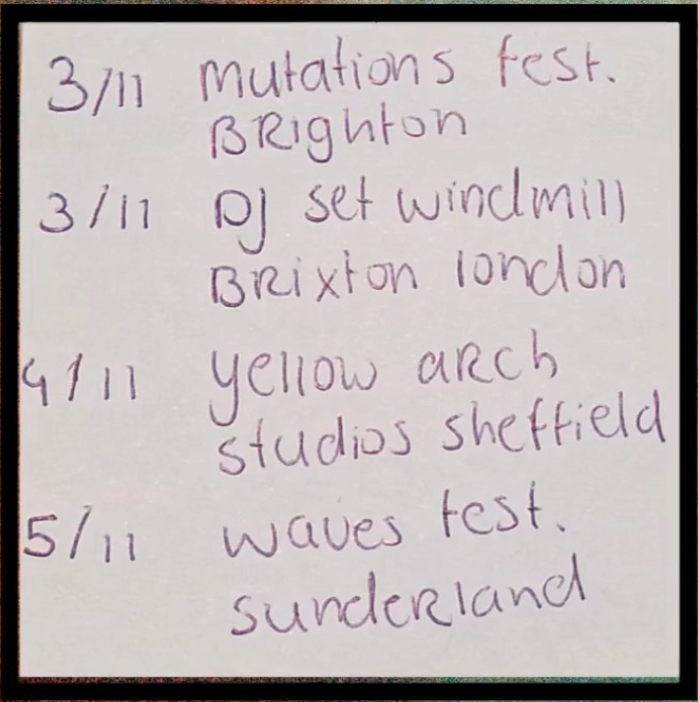 3/11 mutations fest.
BRighton
3/11 DJ set windmill
BRixton london
4/11 yellow aRch
studios sheffield
5/11 waves fest.
sundeRland